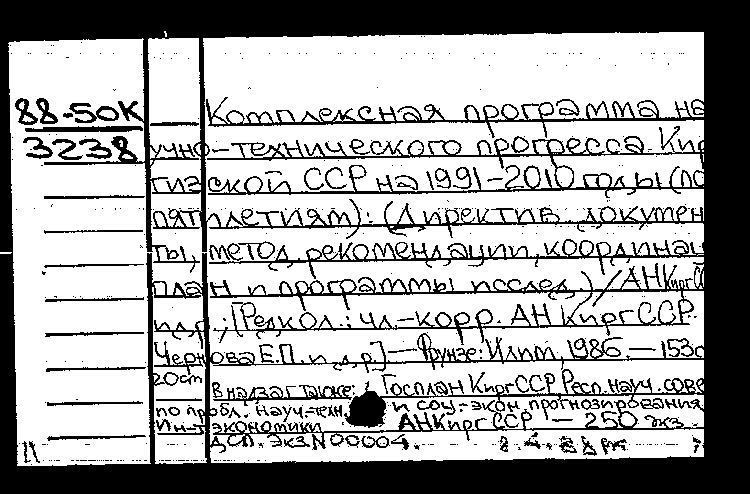 88-50К
3238
Комплексная программа на
учно-технического прогресса Кир
гизской ССР на 1991-2010 годы (по
пятилетиям): (Директив. докумен
ты, метод. рекомендации, координац
план и программы исслед.) / АН Кирг СС
и др.; [Редкол.: чл.-корр. АН КиргССР
Чернова Е.П. и др.] — Фрунзе: Илим, 1986. — 153с
20см В надзаг также: Госплан КиргССР Респ. науч. сове
по пробл. науч.-техн. и соц.-экон. прогнозирования
Ин-т экономики АН Кирг ССР — 250 экз.
ДСП. Экз.N00004.